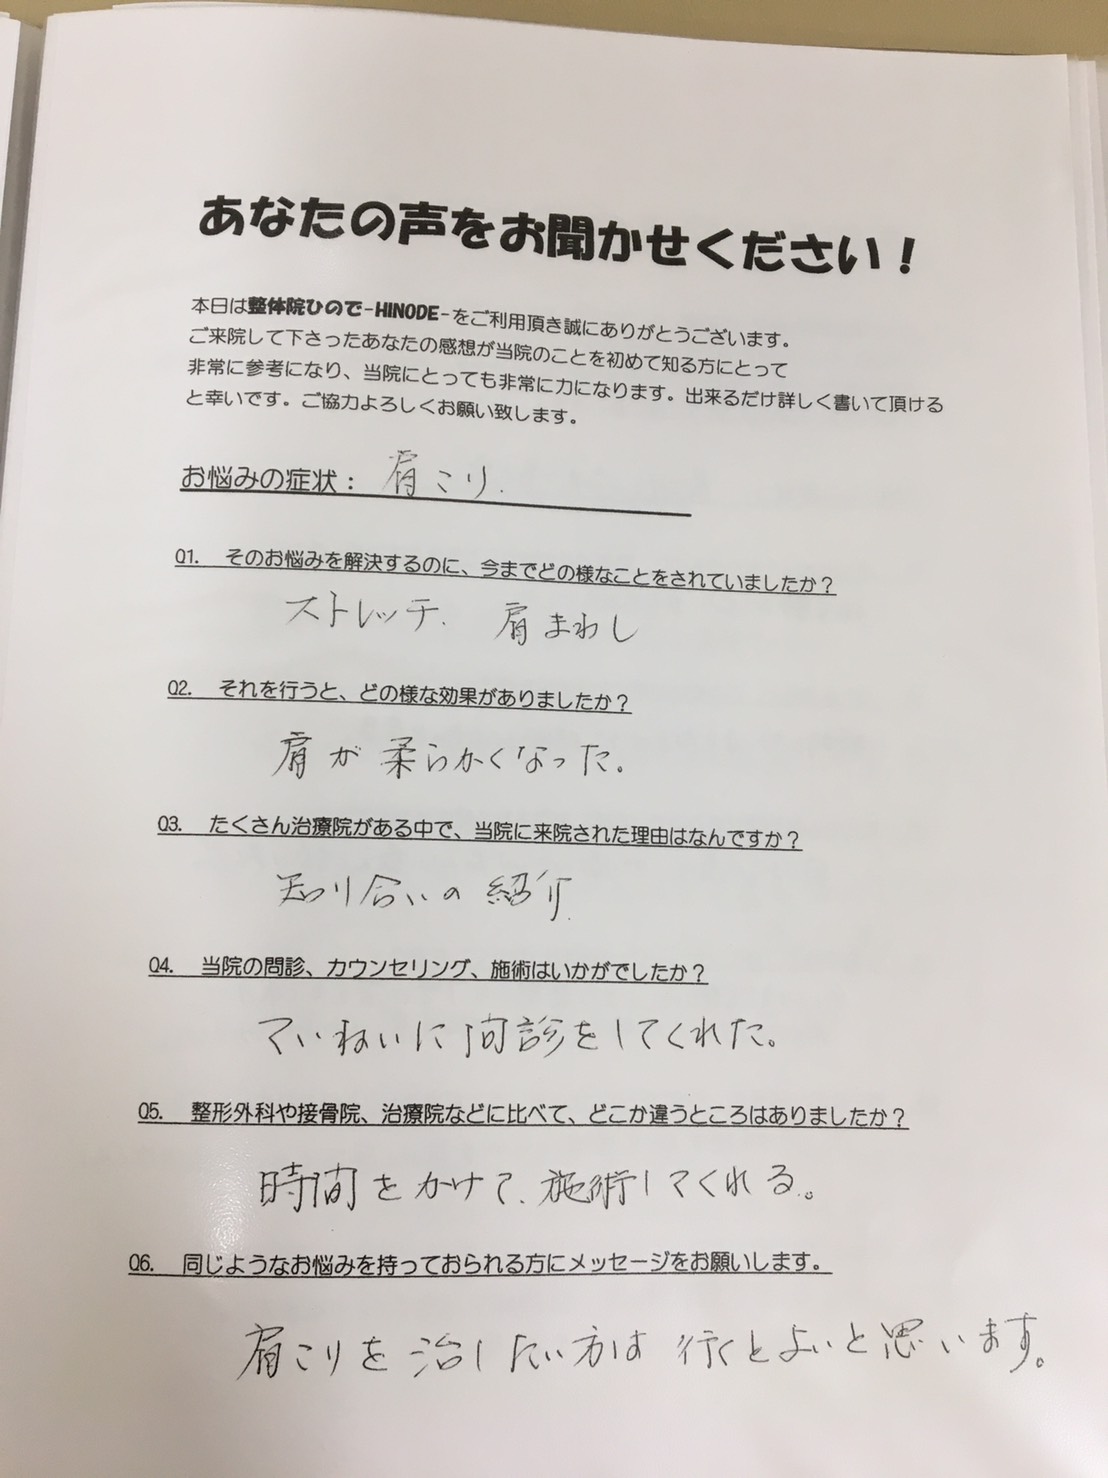 あなたの声をお聞かせください！
本日は整体院ひので-HINODE-をご利用頂き誠にありがとうございます。
ご来院して下さったあなたの感想が当院のことを初めて知る方にとって
非常に参考になり、当院にとっても非常に力になります。出来るだけ詳しく書いて頂ける
と幸いです。ご協力よろしくお願い致します。
お悩みの症状： 肩こり.
Q1. そのお悩みを解決するのに、今までどの様なことをされていましたか？
ストレッチ. 肩まわし
Q2. それを行うと、どの様な効果がありましたか？
肩が柔らかくなった。
Q3. たくさん治療院がある中で、当院に来院された理由はなんですか？
知り合いの紹介.
Q4. 当院の問診、カウンセリング、施術はいかがでしたか？
ていねいに問診をしてくれた。
Q5. 整形外科や接骨院、治療院などに比べて、どこか違うところはありましたか？
時間をかけて、施術してくれる。
Q6. 同じようなお悩みを持っておられる方にメッセージをお願いします。
肩こりを治したい方は行くとよいと思います。